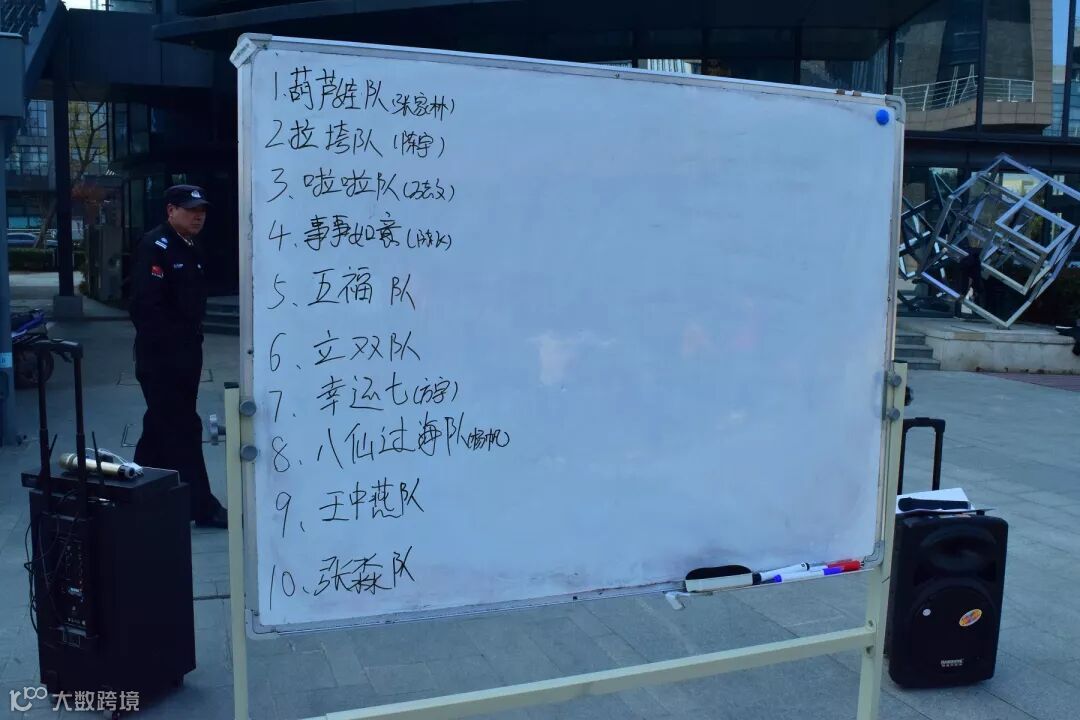 1.葫芦娃队(张家林)
2拉垮队(陈宇)
3、啦啦队
4、事事如意
5、五福队
6、立双队
7、幸运七(方宇)
8、八仙过海队(杨帆)
9、王中燕队
10、张淼队
大数跨境